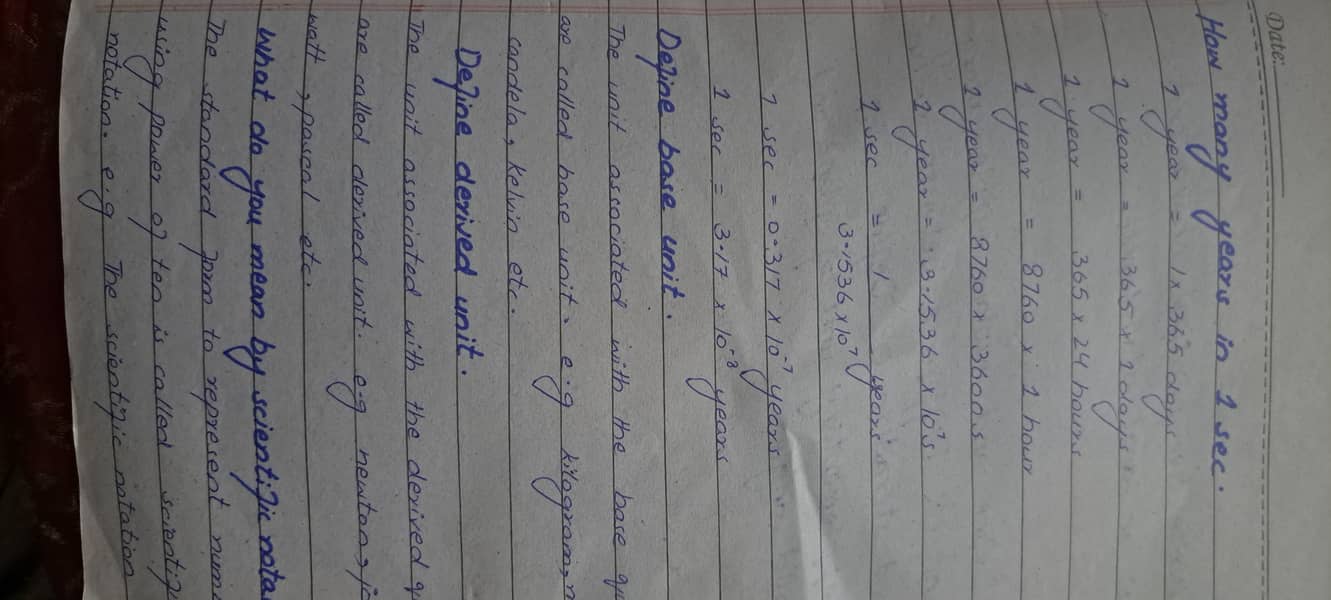 Date:
How many years in 1 sec.
1 year = 1 x 365 days
1 year = 365 x 1 days
1 year = 365 x 24 hours
1 year = 8760 x 1 hour
1 year = 8760 x 3600 s
1 year = 3.1536 x 10⁷ s.
1 sec = 1 years
3.1536 x 10⁷
1 sec = 0.317 x 10⁻⁷ years
1 sec = 3.17 x 10⁻⁸ years
Define base unit.
The unit associated with the base
are called base unit. e.g kilogram,
candela, kelvin etc.
Define derived unit.
The unit associated with the derived
are called derived unit. e.g newton,
watt, pascal etc.
What do you mean by scientific nota
The standard form to represent num
using power of ten is called scientif
notation. e.g The scientific notation